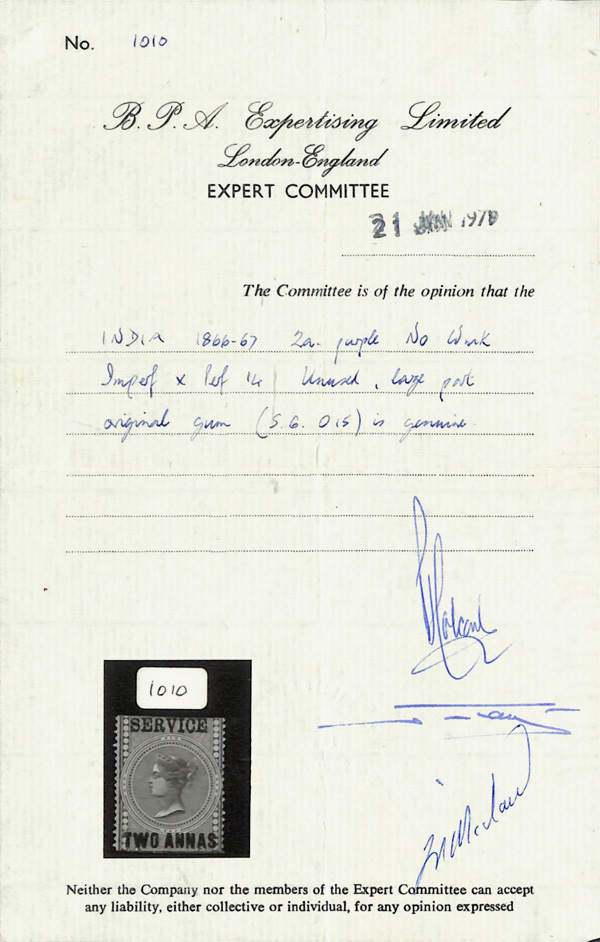 No. 1010
B. P. A. Expertising Limited
London-England
EXPERT COMMITTEE
21 JAN 197
The Committee is of the opinion that the
INDIA 1866-67 2a. purple No Wmk
Imperf x Perf 14 Unused, large part
original gum (S.G. 015) is genuine.
1010
SERVICE
TWO ANNAS
Neither the Company nor the members of the Expert Committee can accept
any liability, either collective or individual, for any opinion expressed